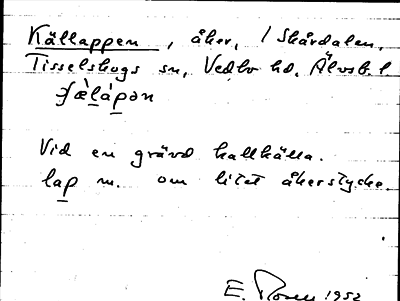 Källappen, åker, i Skårdalen,
Tisselskogs sn, Vedbo hd, Älvsb. l
ɟæ̀lápən
Vid en grävd kallkälla.
lap m. om litet åkerstycke.
E. Rosen 1952